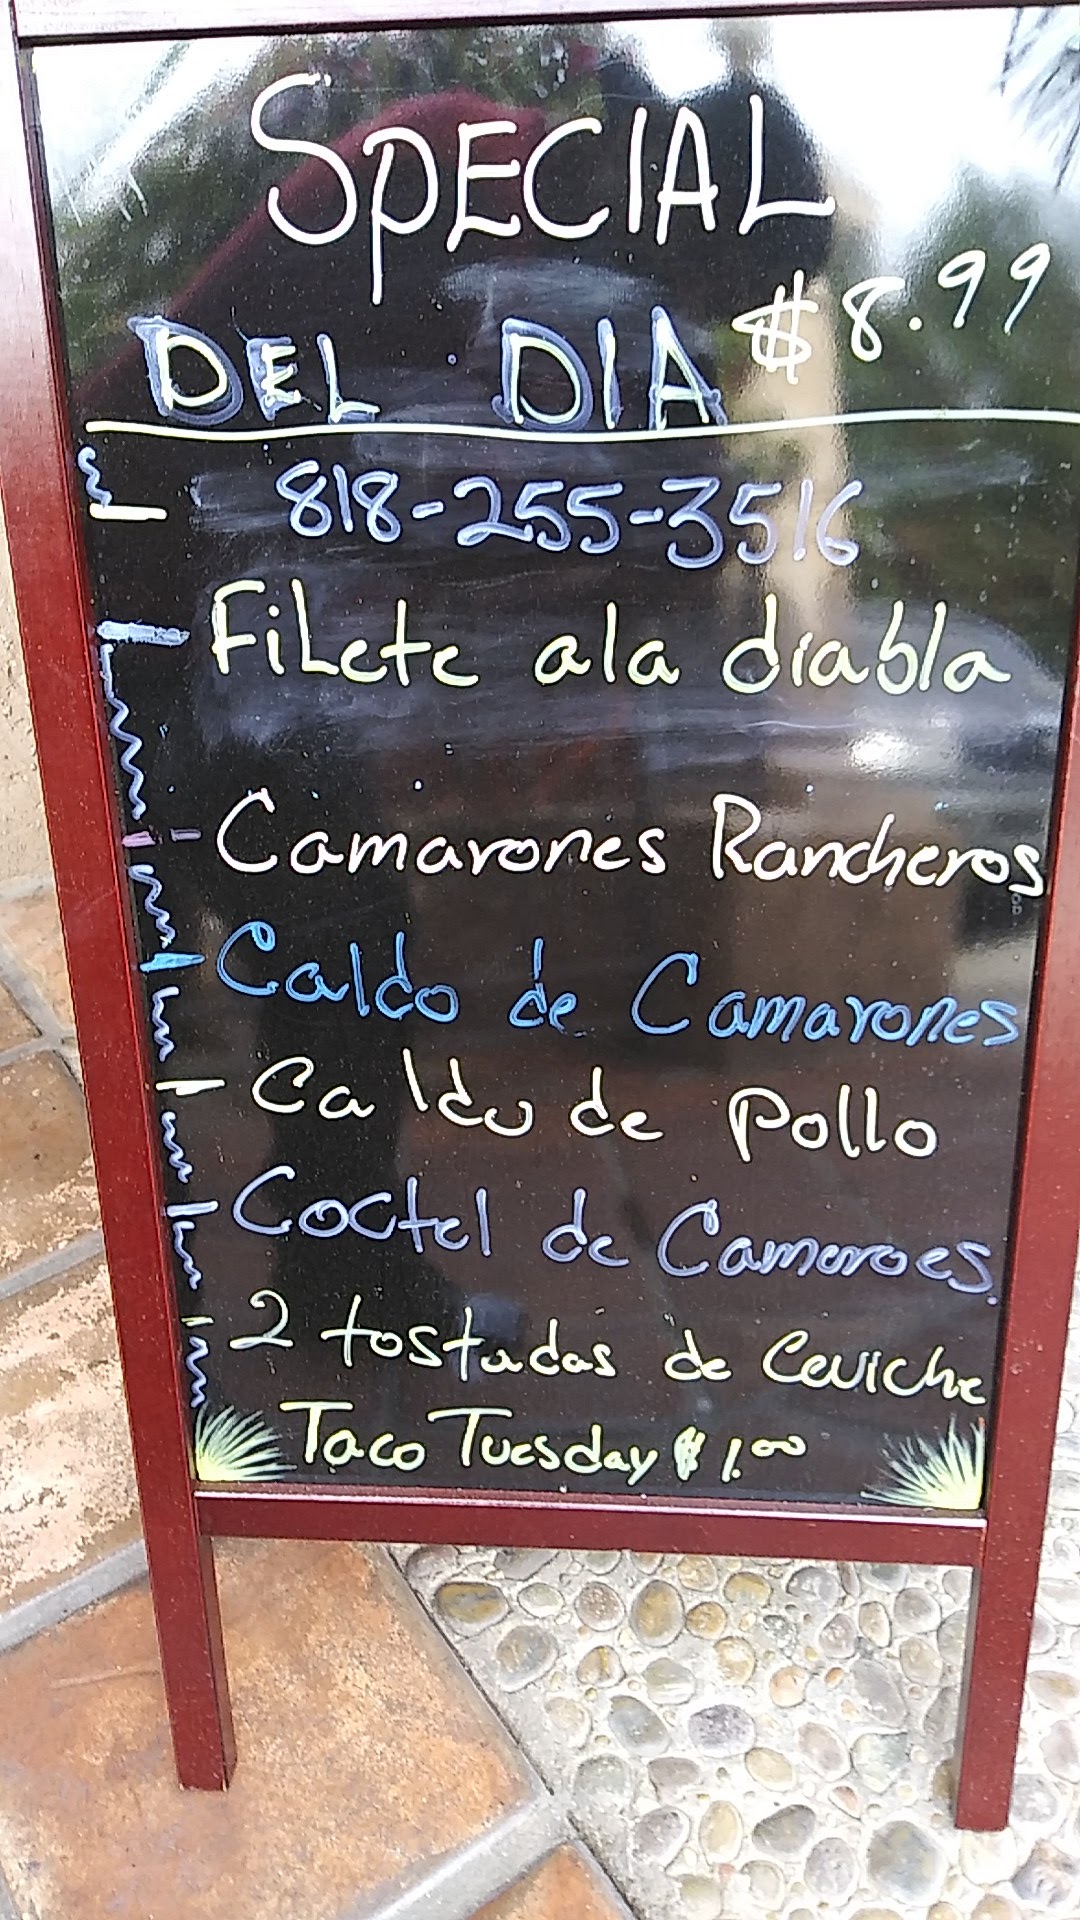 SPECIAL
DEL DIA $8.99
818-255-3516
Filete ala diabla
Camarones Rancheros
Caldo de Camarones
Caldo de pollo
Coctel de Camaroes.
2 tostadas de Ceviche
Taco Tuesday $1.00